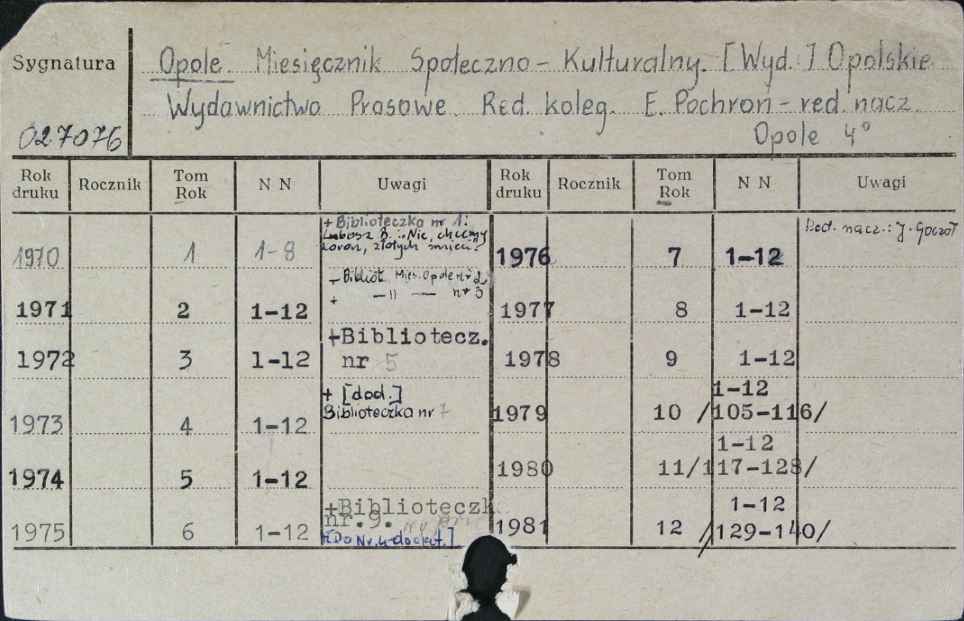 Sygnatura
Opole. Miesięcznik Społeczno-Kulturalny. [Wyd.] Opolskie
Wydawnictwo Prasowe. Red. koleg. E. Pochroń - red. nacz.
027076
Opole 4°
Rok druku Rocznik Tom Rok N N Uwagi Rok druku Rocznik Tom Rok N N Uwagi
1970 1 1-8 + Biblioteczka nr 1:
Lubosz B.: Nie, chcemy
koron, złotych
1976 7 1-12 Red. nacz.: J. Goczoł
1971 2 1-12 + Bibliot. Mies. Opole nr 2
+ -"- nr 3
1977 8 1-12
1972 3 1-12 +Bibliotecz.
nr 5
1978 9 1-12
1973 4 1-12 + [dod.]
Biblioteczka nr 7
1979 10 1-12
/105-116/
1974 5 1-12
1980 11 1-12
/117-128/
1975 6 1-12 +Biblioteczk
nr.9.
+[Do Nr. 4 dodat.]
1981 12 1-12
/129-140/